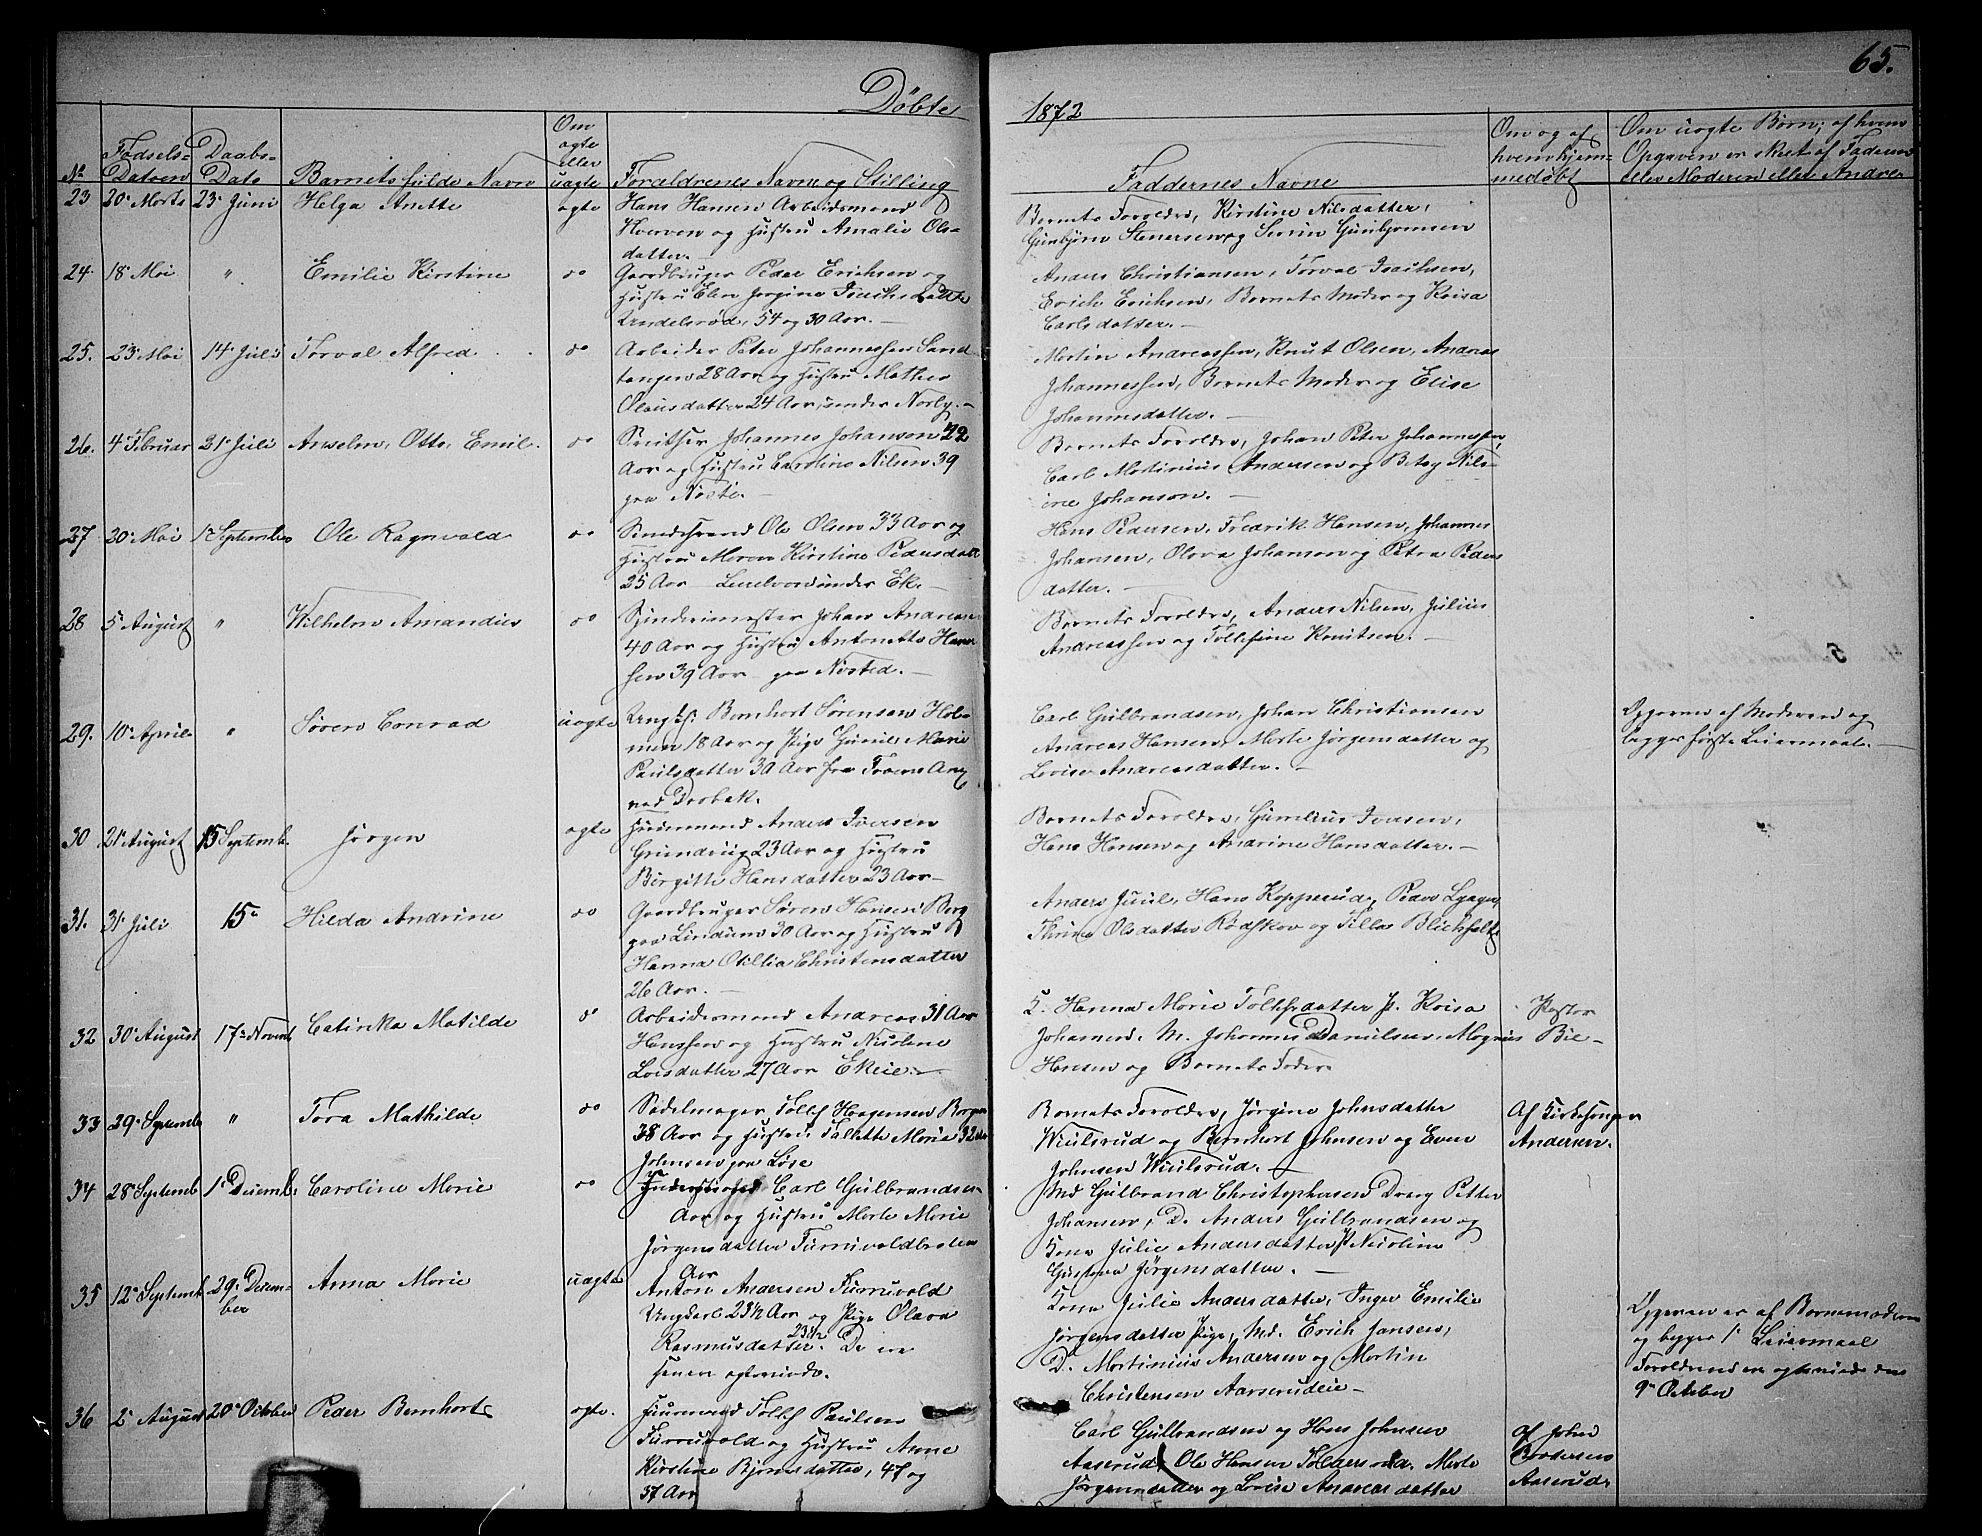 65.
Døbte
1872
No
Fødsels-
Datoen
Daabs-
Dato
Barnets fulde Navn
Om
ægte
eller
uægte
Forældrenes Navn og Stilling
Faddernes Navne
Om og af
hvem hjem-
medøbt
Om uægte Børn; af hvem
Opgaven er skeet af Faderen
eller Moderen eller Andre
23 20de Marts 23de Juni Helga Anette ægte
Hans Hansen Arbeidsmand
og Hustru Amalie Ols-
datter. —
Barnets Forældre, Kirstine Nilsdatter,
Gunbjørn Stenersen og Gunbjørnsen
24. 18de Mai " Emilie Kirstine do
Gaardbruger Peder Erichsen og
Hustru Elen Jørgine
54 og 30 Aar. —
Anders Christiansen, Torval Isachsen,
Erich Erichsen, Barnets Moder og Kaisa
Carlsdatter. —
25. 23de Mai 14de Juli Torval Alfred do
Arbeider Peter Johannessen Sand-
tangen 28 Aar og Hustru Mathea
Olausdatter 24 Aar, under Norby. —
Martin Andreassen, Knut Olsen, Andreas
Johannessen, Barnets Moder og Elise
Johannesdatter. —
26. 4de Februar 21de Juli Anselm, Otto, Emil. do
Johannes Johanson 42
Aar og Hustru Caroline Nilsen 39
paa
Barnets Forældre, Johan Peter Johannessen,
Carl Martinius Andersen og Betsy Nils-
ine Johanson. —
27 20de Mai 1ste September Ole Ragnvald do
Ole Olsen 33 Aar og
Hustru Maren Kirstine Pedersdatt
25 Aar under Ek. —
Hans Pedersen, Fredrik Hansen, Johannes
Johansen, Olava Johanson og Petra Peders
datter. —
28 5te August " Wilhelm Amandus do
Johan Andreasen
40 Aar og Hustru Antonette Han-
sen 39 Aar paa Nøsted. —
Barnets Forældre, Anders Nilsen, Julius
Andreassen og Tollefine Knutsen. —
29. 10de April " Søren Conrad uægte
Ungk. Bernhart Sørensen Hol-
men 18 Aar og Pige Gunild Marie
Paulsdatter 30 Aar fra
ved Drøbak.
Carl Gulbrandsen, Johan Christiansen
Andreas Hansen, Marte Jørgensdatter og
Lovise Andreasdatter. —
Opgaven af Moderen og
begges første Leiermaal. —
30 21de August 15 Septemb. Jørgen ægte
Huusmand Anders Iversen
23 Aar og Hustru
Birgitte Hansdatter 23 Aar —
Barnets Forældre, Iversen,
Hans Hansen og Andrine Hansdatter. —
31. 31te Juli 15de Hilda Andrine do
Gaardbruger Søren Hansen Berg
paa Lindum 30 Aar og Hustru
Hanna Otillia Christensdatter
26 Aar. —
Anders Juul, Hans Kopperud, Peder
Olsdatter Rødskov og Tilla Blichfelt
32 30te August 17de Novemb Catinka Matilde do
Arbeidsmand Andreas 31 Aar
Hanssen og Hustru Nicoline
Larsdatter 27 Aar Ekeie. —
K. Hanna Marie Tollefsdatter P. Kaisa
M. Johannes Danielsen, Magnus
Hansen og Barnets Fader
Pastor
Bie —
33 29de Septemb " Tora Mathilde do
Sadelmager Tollef Hagensen
38 Aar og Hustru Marie 32 Aar
Johnsen paa
Barnets Forældre, Jørgine Johnsdatter
Wiulsrud og Bernhart Johnsen og Even
Johnsen Wiulsrud. —
Af Kirkesanger
Andersen.
34 28de Septemb 1ste Decemb. Caroline Marie do
Carl Gulbrandsen
Aar og Hustru Marte Marie
Jørgensdatter
Aar
Md Gulbrand Christophersen Petter
Johansen, D. Anders Gulbrandsen og
Kone Julie Andersdatter P. Nicoline
Gustava Jørgensdatter. —
35 12te Septemb 29de Decem-
ber
Anna Marie uægte
Anton Andersen Furruvald
Ungkarl 23½ Aar og Pige Olava
Rasmusdatter 23½. De ere
senere ægteviede.
Kone Julie Andersdatter, Inger Emilie
Jørgensdatter Pige, Md. Erich Jansen,
D. Martinius Andersen og Martin
Christensen Aaserudeie —
Opgaven er af Barnemoderen
og begges 1ste Leiermaal
Forældrene ere ægteviede den
9de October
36 2de August 20de October Peder Bernhart ægte.
Huusmand Tollef Paulsen
Furruvald og Hustru Anne
Kirstine Bjørnsdatter, 47 og
37 Aar
Carl Gulbrandsen og Hans Johnsen
Aaserud, Ole Hansen Marte
Jørgensdatter og Lovise Andreasdatter
af Johan
Aaserud.